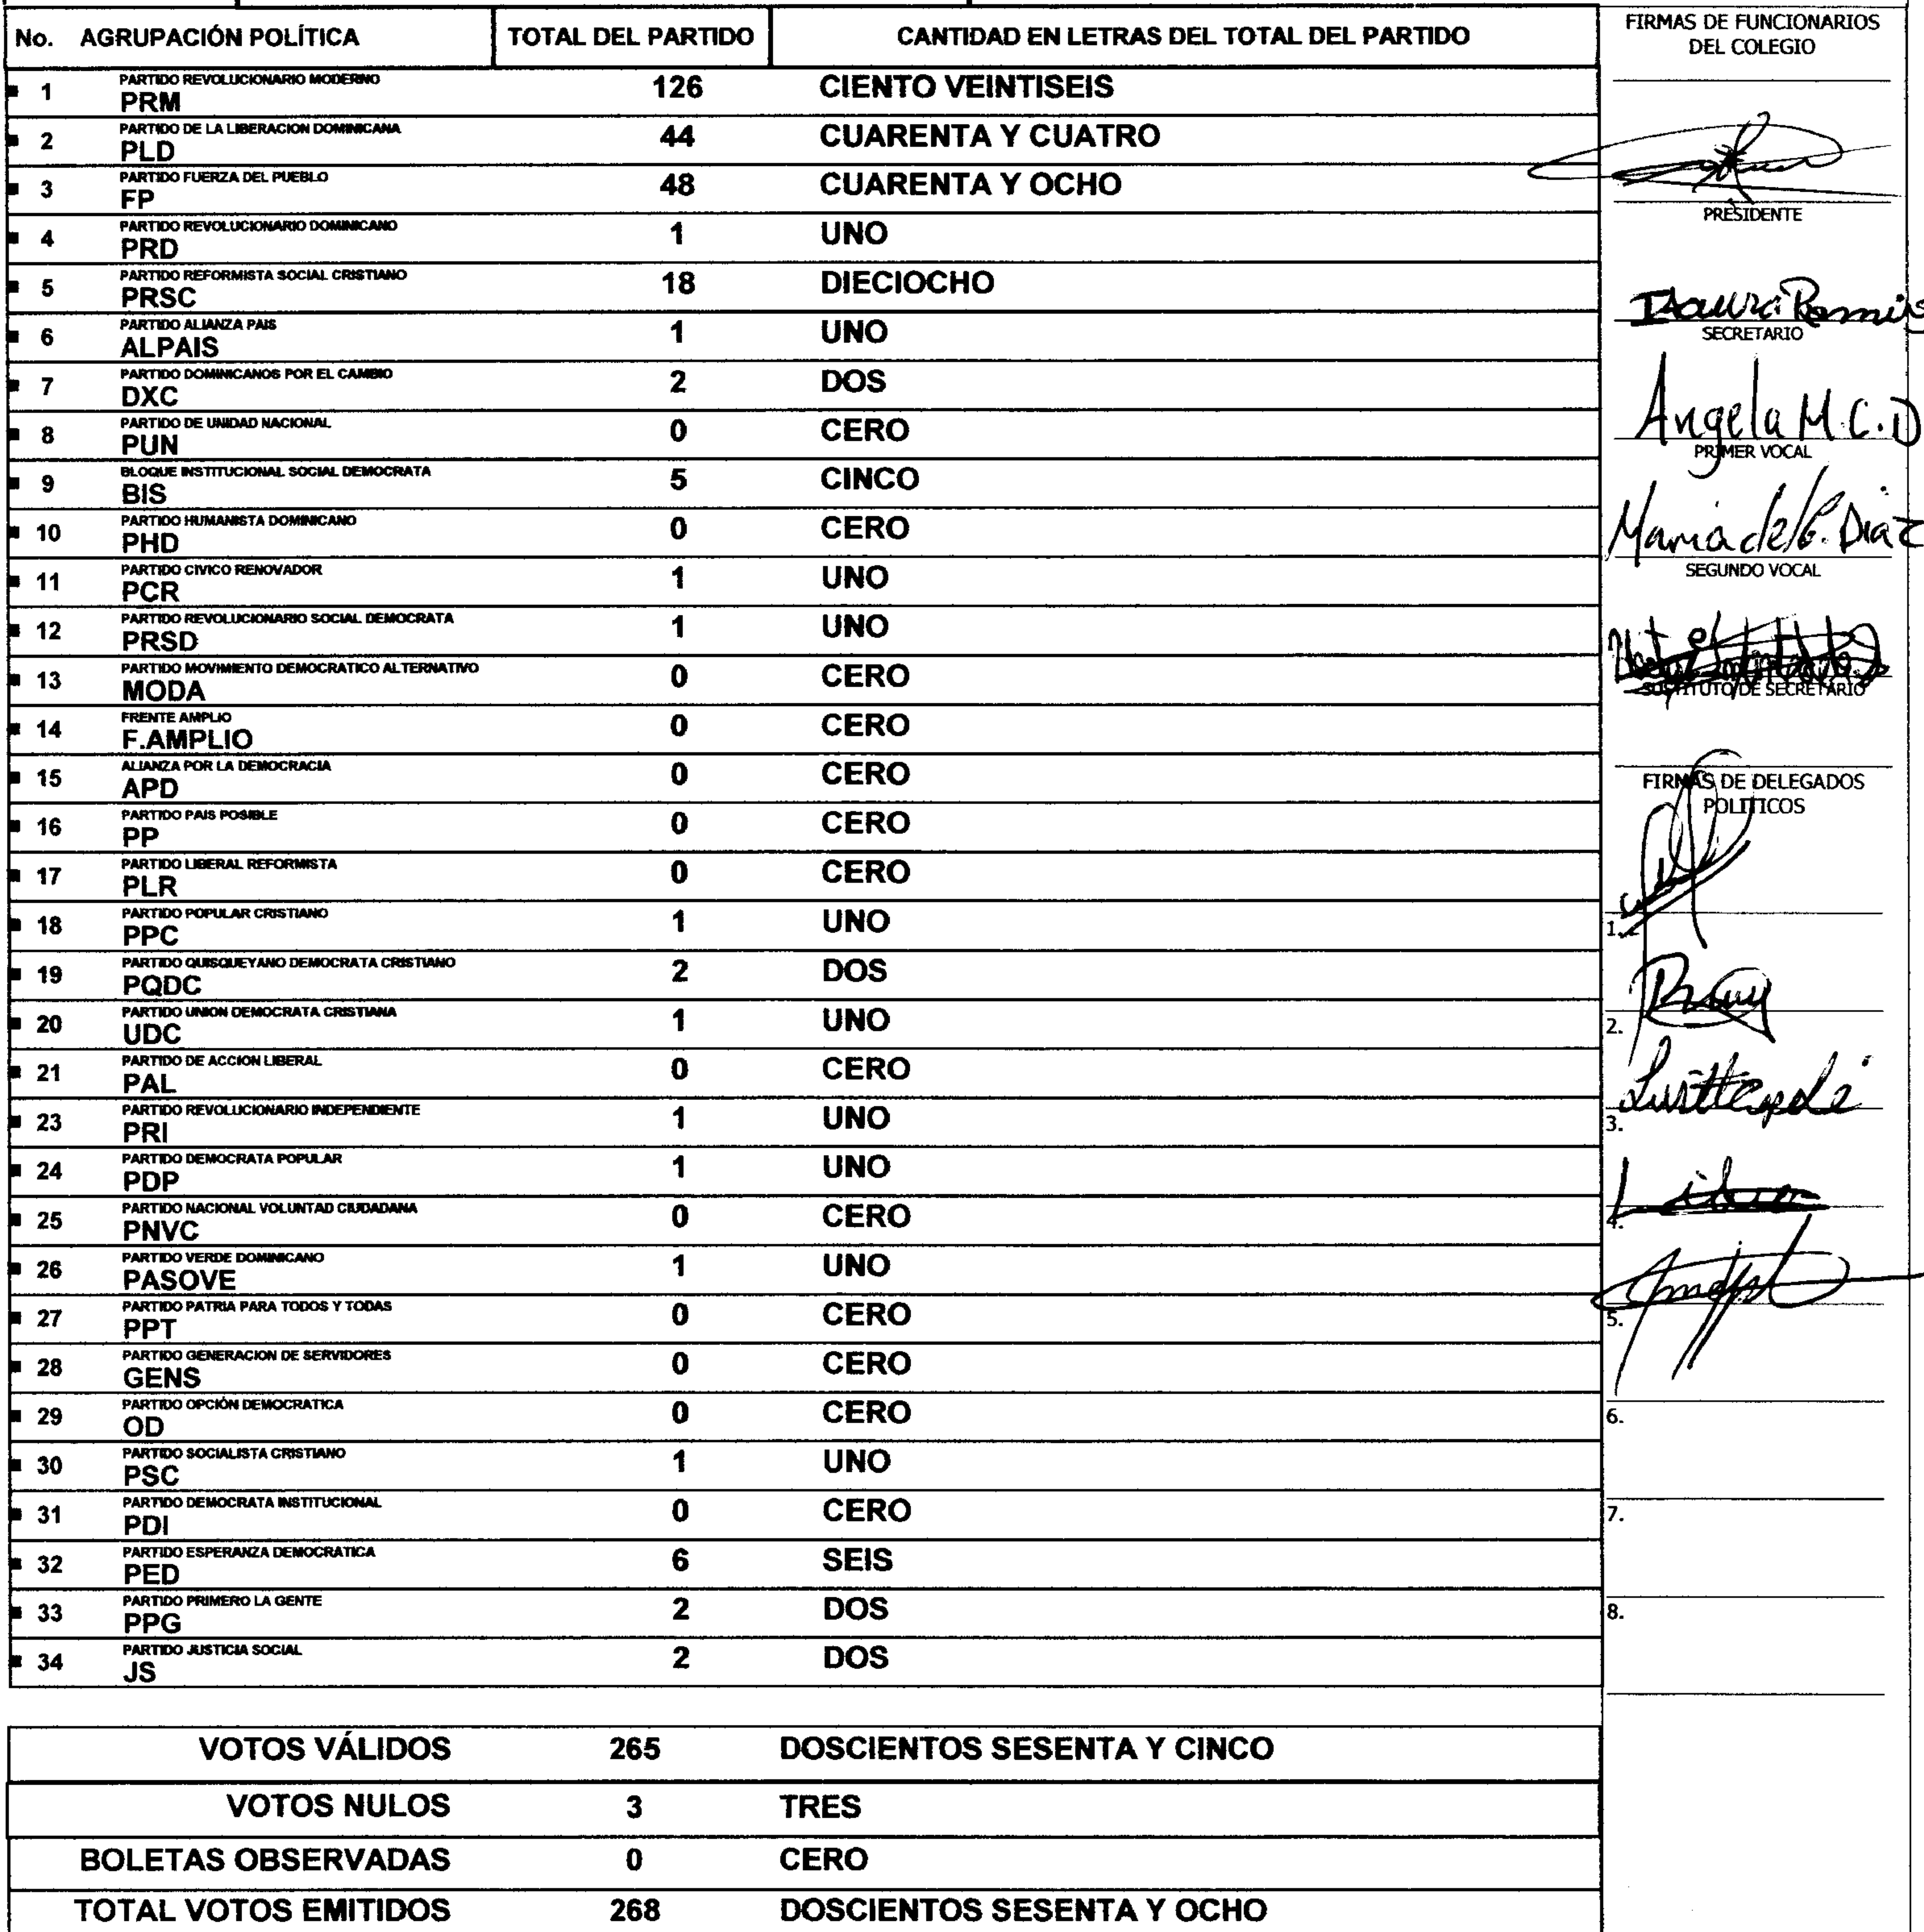 No. AGRUPACIÓN POLÍTICA TOTAL DEL PARTIDO CANTIDAD EN LETRAS DEL TOTAL DEL PARTIDO
1 PARTIDO REVOLUCIONARIO MODERNO
PRM 126 CIENTO VEINTISEIS
2 PARTIDO DE LA LIBERACION DOMINICANA
PLD 44 CUARENTA Y CUATRO
3 PARTIDO FUERZA DEL PUEBLO
FP 48 CUARENTA Y OCHO
4 PARTIDO REVOLUCIONARIO DOMINICANO
PRD 1 UNO
5 PARTIDO REFORMISTA SOCIAL CRISTIANO
PRSC 18 DIECIOCHO
6 PARTIDO ALIANZA PAIS
ALPAIS 1 UNO
7 PARTIDO DOMINICANOS POR EL CAMBIO
DXC 2 DOS
8 PARTIDO DE UNIDAD NACIONAL
PUN 0 CERO
9 BLOQUE INSTITUCIONAL SOCIAL DEMOCRATA
BIS 5 CINCO
10 PARTIDO HUMANISTA DOMINICANO
PHD 0 CERO
11 PARTIDO CIVICO RENOVADOR
PCR 1 UNO
12 PARTIDO REVOLUCIONARIO SOCIAL DEMOCRATA
PRSD 1 UNO
13 PARTIDO MOVIMIENTO DEMOCRATICO ALTERNATIVO
MODA 0 CERO
14 FRENTE AMPLIO
F.AMPLIO 0 CERO
15 ALIANZA POR LA DEMOCRACIA
APD 0 CERO
16 PARTIDO PAIS POSIBLE
PP 0 CERO
17 PARTIDO LIBERAL REFORMISTA
PLR 0 CERO
18 PARTIDO POPULAR CRISTIANO
PPC 1 UNO
19 PARTIDO QUISQUEYANO DEMOCRATA CRISTIANO
PQDC 2 DOS
20 PARTIDO UNION DEMOCRATA CRISTIANA
UDC 1 UNO
21 PARTIDO DE ACCION LIBERAL
PAL 0 CERO
23 PARTIDO REVOLUCIONARIO INDEPENDIENTE
PRI 1 UNO
24 PARTIDO DEMOCRATA POPULAR
PDP 1 UNO
25 PARTIDO NACIONAL VOLUNTAD CIUDADANA
PNVC 0 CERO
26 PARTIDO VERDE DOMINICANO
PASOVE 1 UNO
27 PARTIDO PATRIA PARA TODOS Y TODAS
PPT 0 CERO
28 PARTIDO GENERACION DE SERVIDORES
GENS 0 CERO
29 PARTIDO OPCIÓN DEMOCRATICA
OD 0 CERO
30 PARTIDO SOCIALISTA CRISTIANO
PSC 1 UNO
31 PARTIDO DEMOCRATA INSTITUCIONAL
PDI 0 CERO
32 PARTIDO ESPERANZA DEMOCRATICA
PED 6 SEIS
33 PARTIDO PRIMERO LA GENTE
PPG 2 DOS
34 PARTIDO JUSTICIA SOCIAL
JS 2 DOS
VOTOS VÁLIDOS 265 DOSCIENTOS SESENTA Y CINCO
VOTOS NULOS 3 TRES
BOLETAS OBSERVADAS 0 CERO
TOTAL VOTOS EMITIDOS 268 DOSCIENTOS SESENTA Y OCHO
FIRMAS DE FUNCIONARIOS
DEL COLEGIO
PRESIDENTE
Isaura
SECRETARIO
Angela M.C.D
PRIMER VOCAL
Maria del C. Diaz
SEGUNDO VOCAL
SUSTITUTO DE SECRETARIO
FIRMAS DE DELEGADOS
POLITICOS
1.
2.
3.
4.
5.
6.
7.
8.